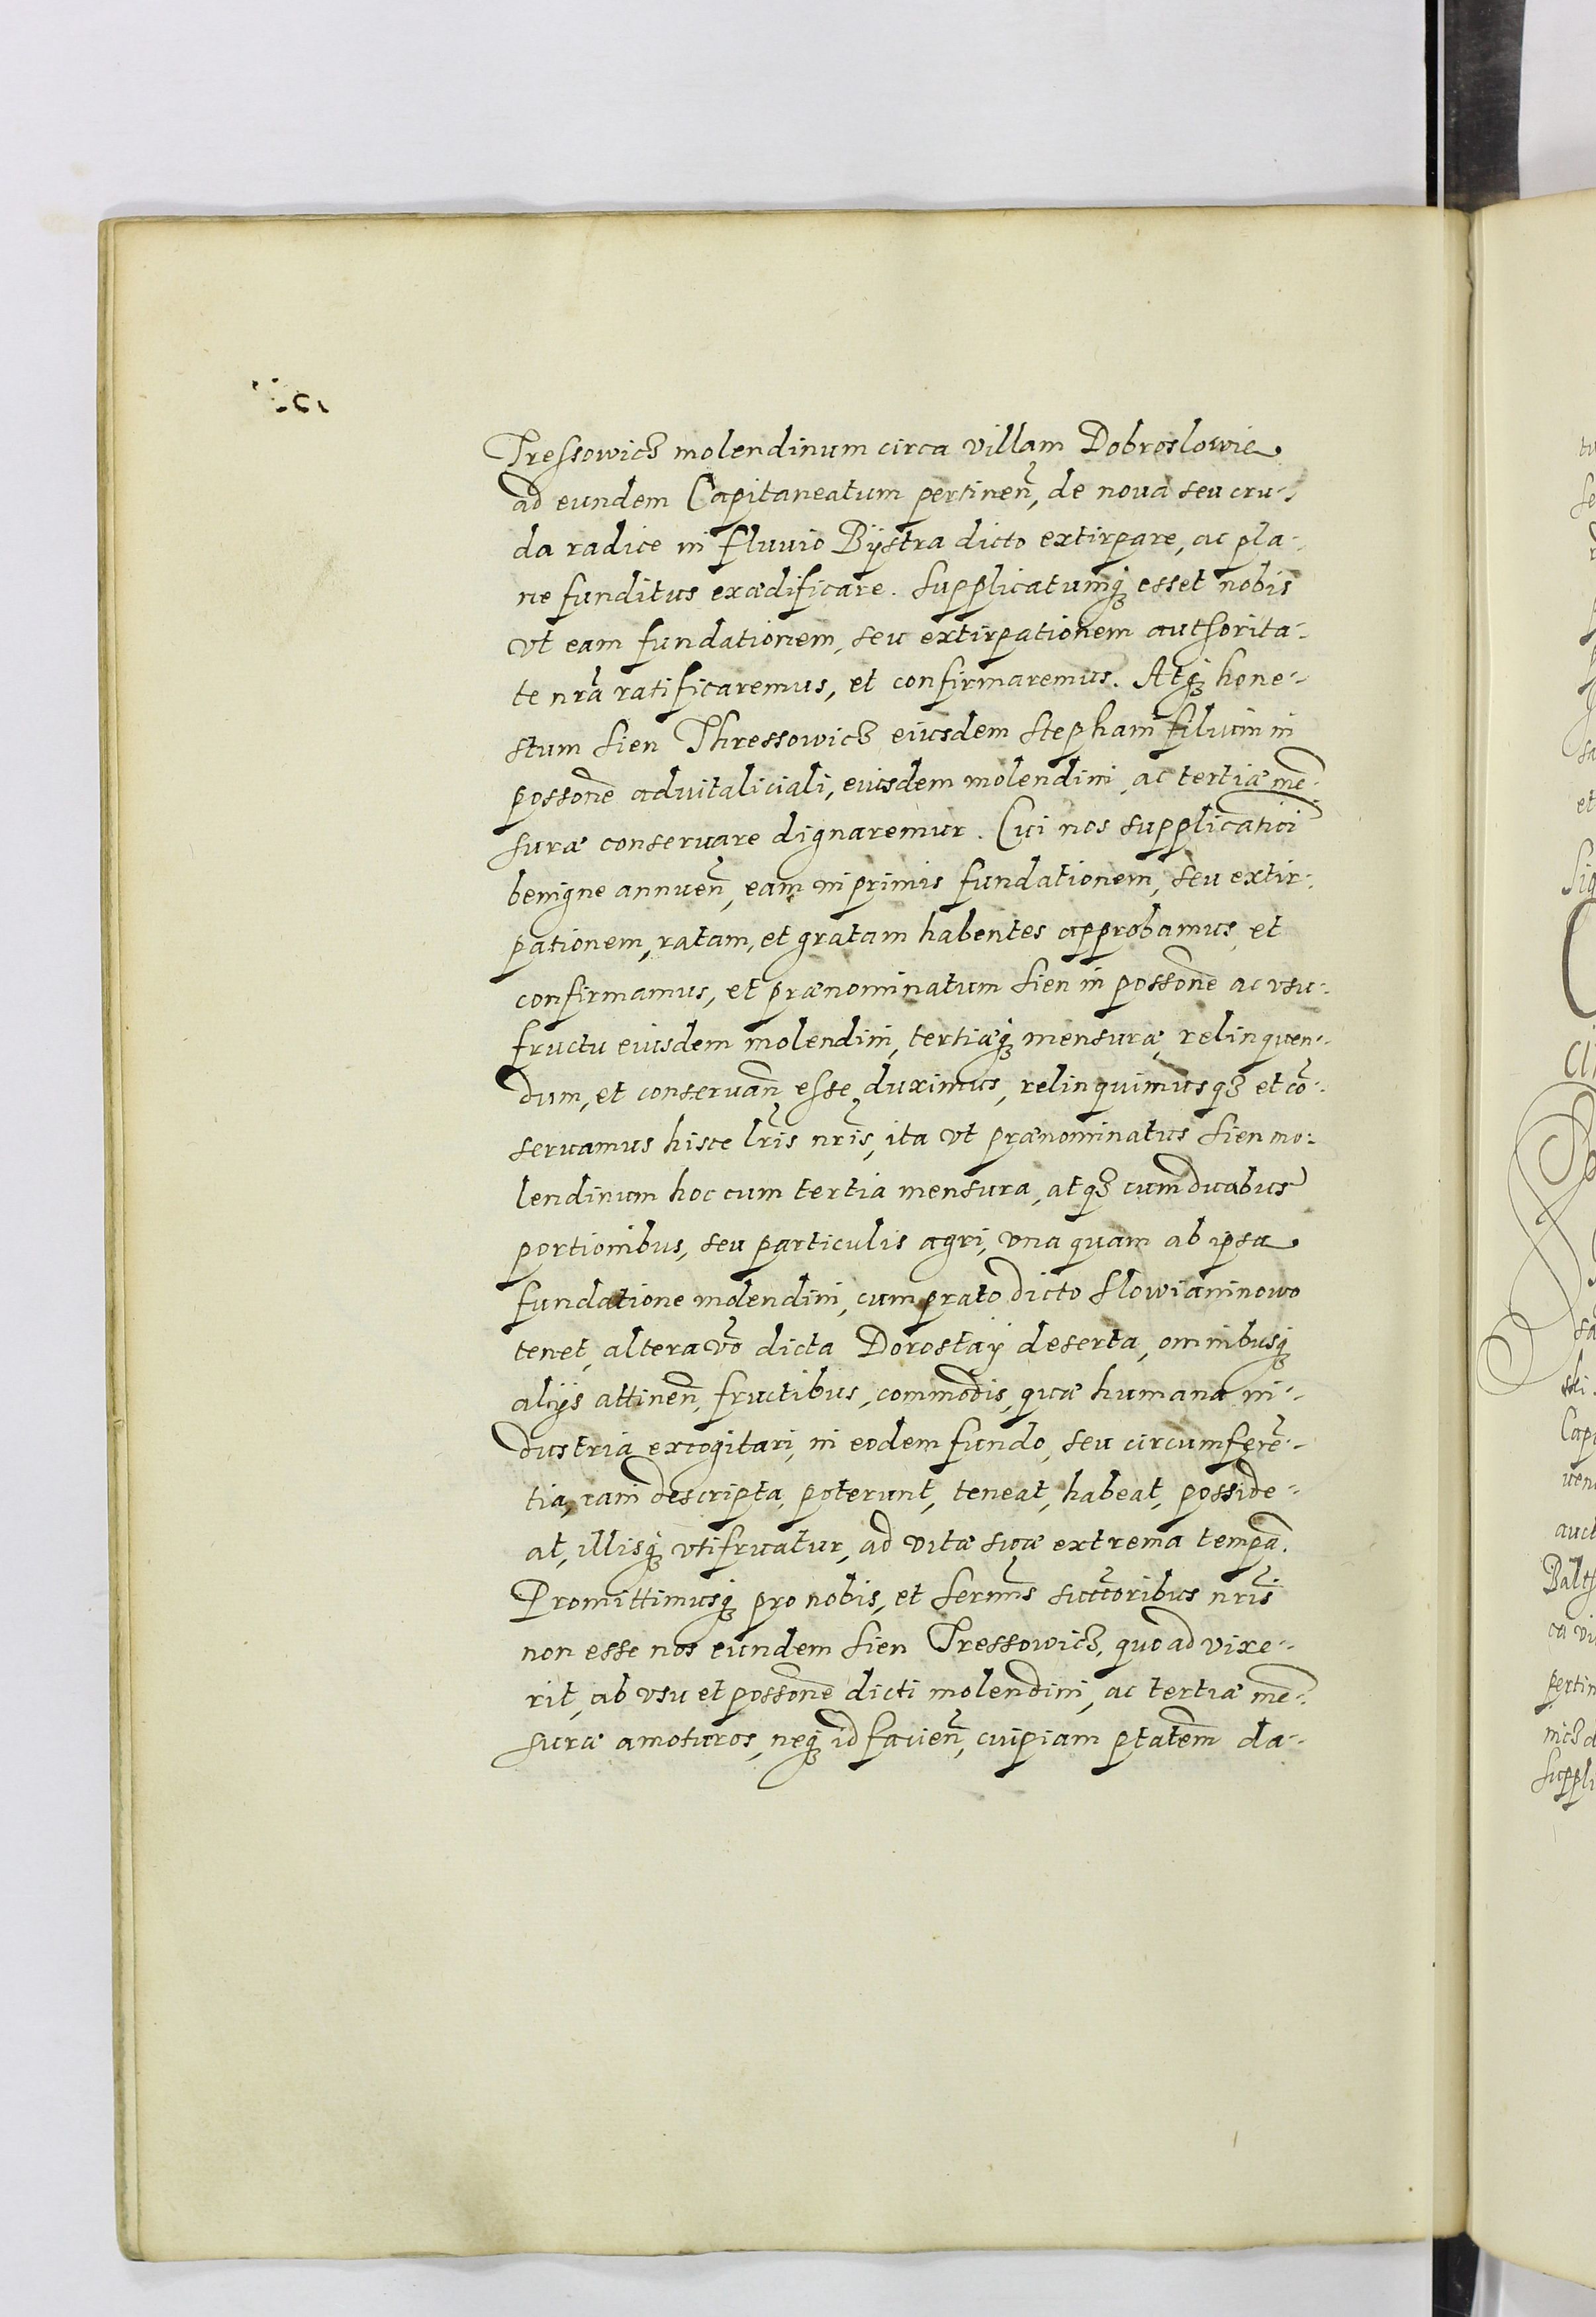 Tressowicz molendinum circa villam Dobroslowie
ad eundem Capitaneatum pertinen̄, de noua seu cru-
da radice in fluuio Bÿstra dicto extirpare, ac pla-
ne funditus exædificare. Supplicatumq₃ esset nobis
vt eam fundationem, seu extirpationem authorita-
te nr̄a ratificaremus, et confirmaremus. Atq₃ hone-
stum Sien Thressowicz eiusdem Stephani filium in
posson̄e aduitaliciali, eiusdem molendini, ac tertiæ mē-
suræ conseruare dignaremur. Cui nos supplicatioi
benigne annuen̄, eam in primis fundationem, seu extir-
pationem, ratam, et gratam habentes approbamus, et
confirmamus, et prænominatum Sien in posson̄e ac vsu-
fructu eiusdem molendini, tertiæq₃ mensuræ, relinquen-
dum, et conseruan̄ esse duximus, relinquimusq₃ et cō-
seruamus hisce lr̄is nr̄is, ita vt prænominatus Sien mo-
lendinum hoc cum tertia mensura, atq₃ cum duabus
portionibus, seu particulis agri, vna quam ab ipsa
fundatione molendini, cum prato dicto Slowianinowo
tenet, altera vō dicta Dorostaÿ deserta, omnibusq₃
alijs attinen̄, fructibus, commodis, quæ humana in-
dustria excogitari, in eodem fundo, seu circumferē-
tia, iam descripta, poterunt, teneat, habeat, posside-
at, illisq₃ vtifruatur, ad vitæ suæ extrema temp̄a.
Promittimusq₃ pro nobis, et Sermis succ̄oribus nr̄is
non esse nos eundem Sien Tressowicz, quoad vixe-
rit, ab vsu et posson̄e dicti molendini, ac tertiæ mē-
suræ amoturos, neq₃ id facien̄, cuipiam ptatēm da-